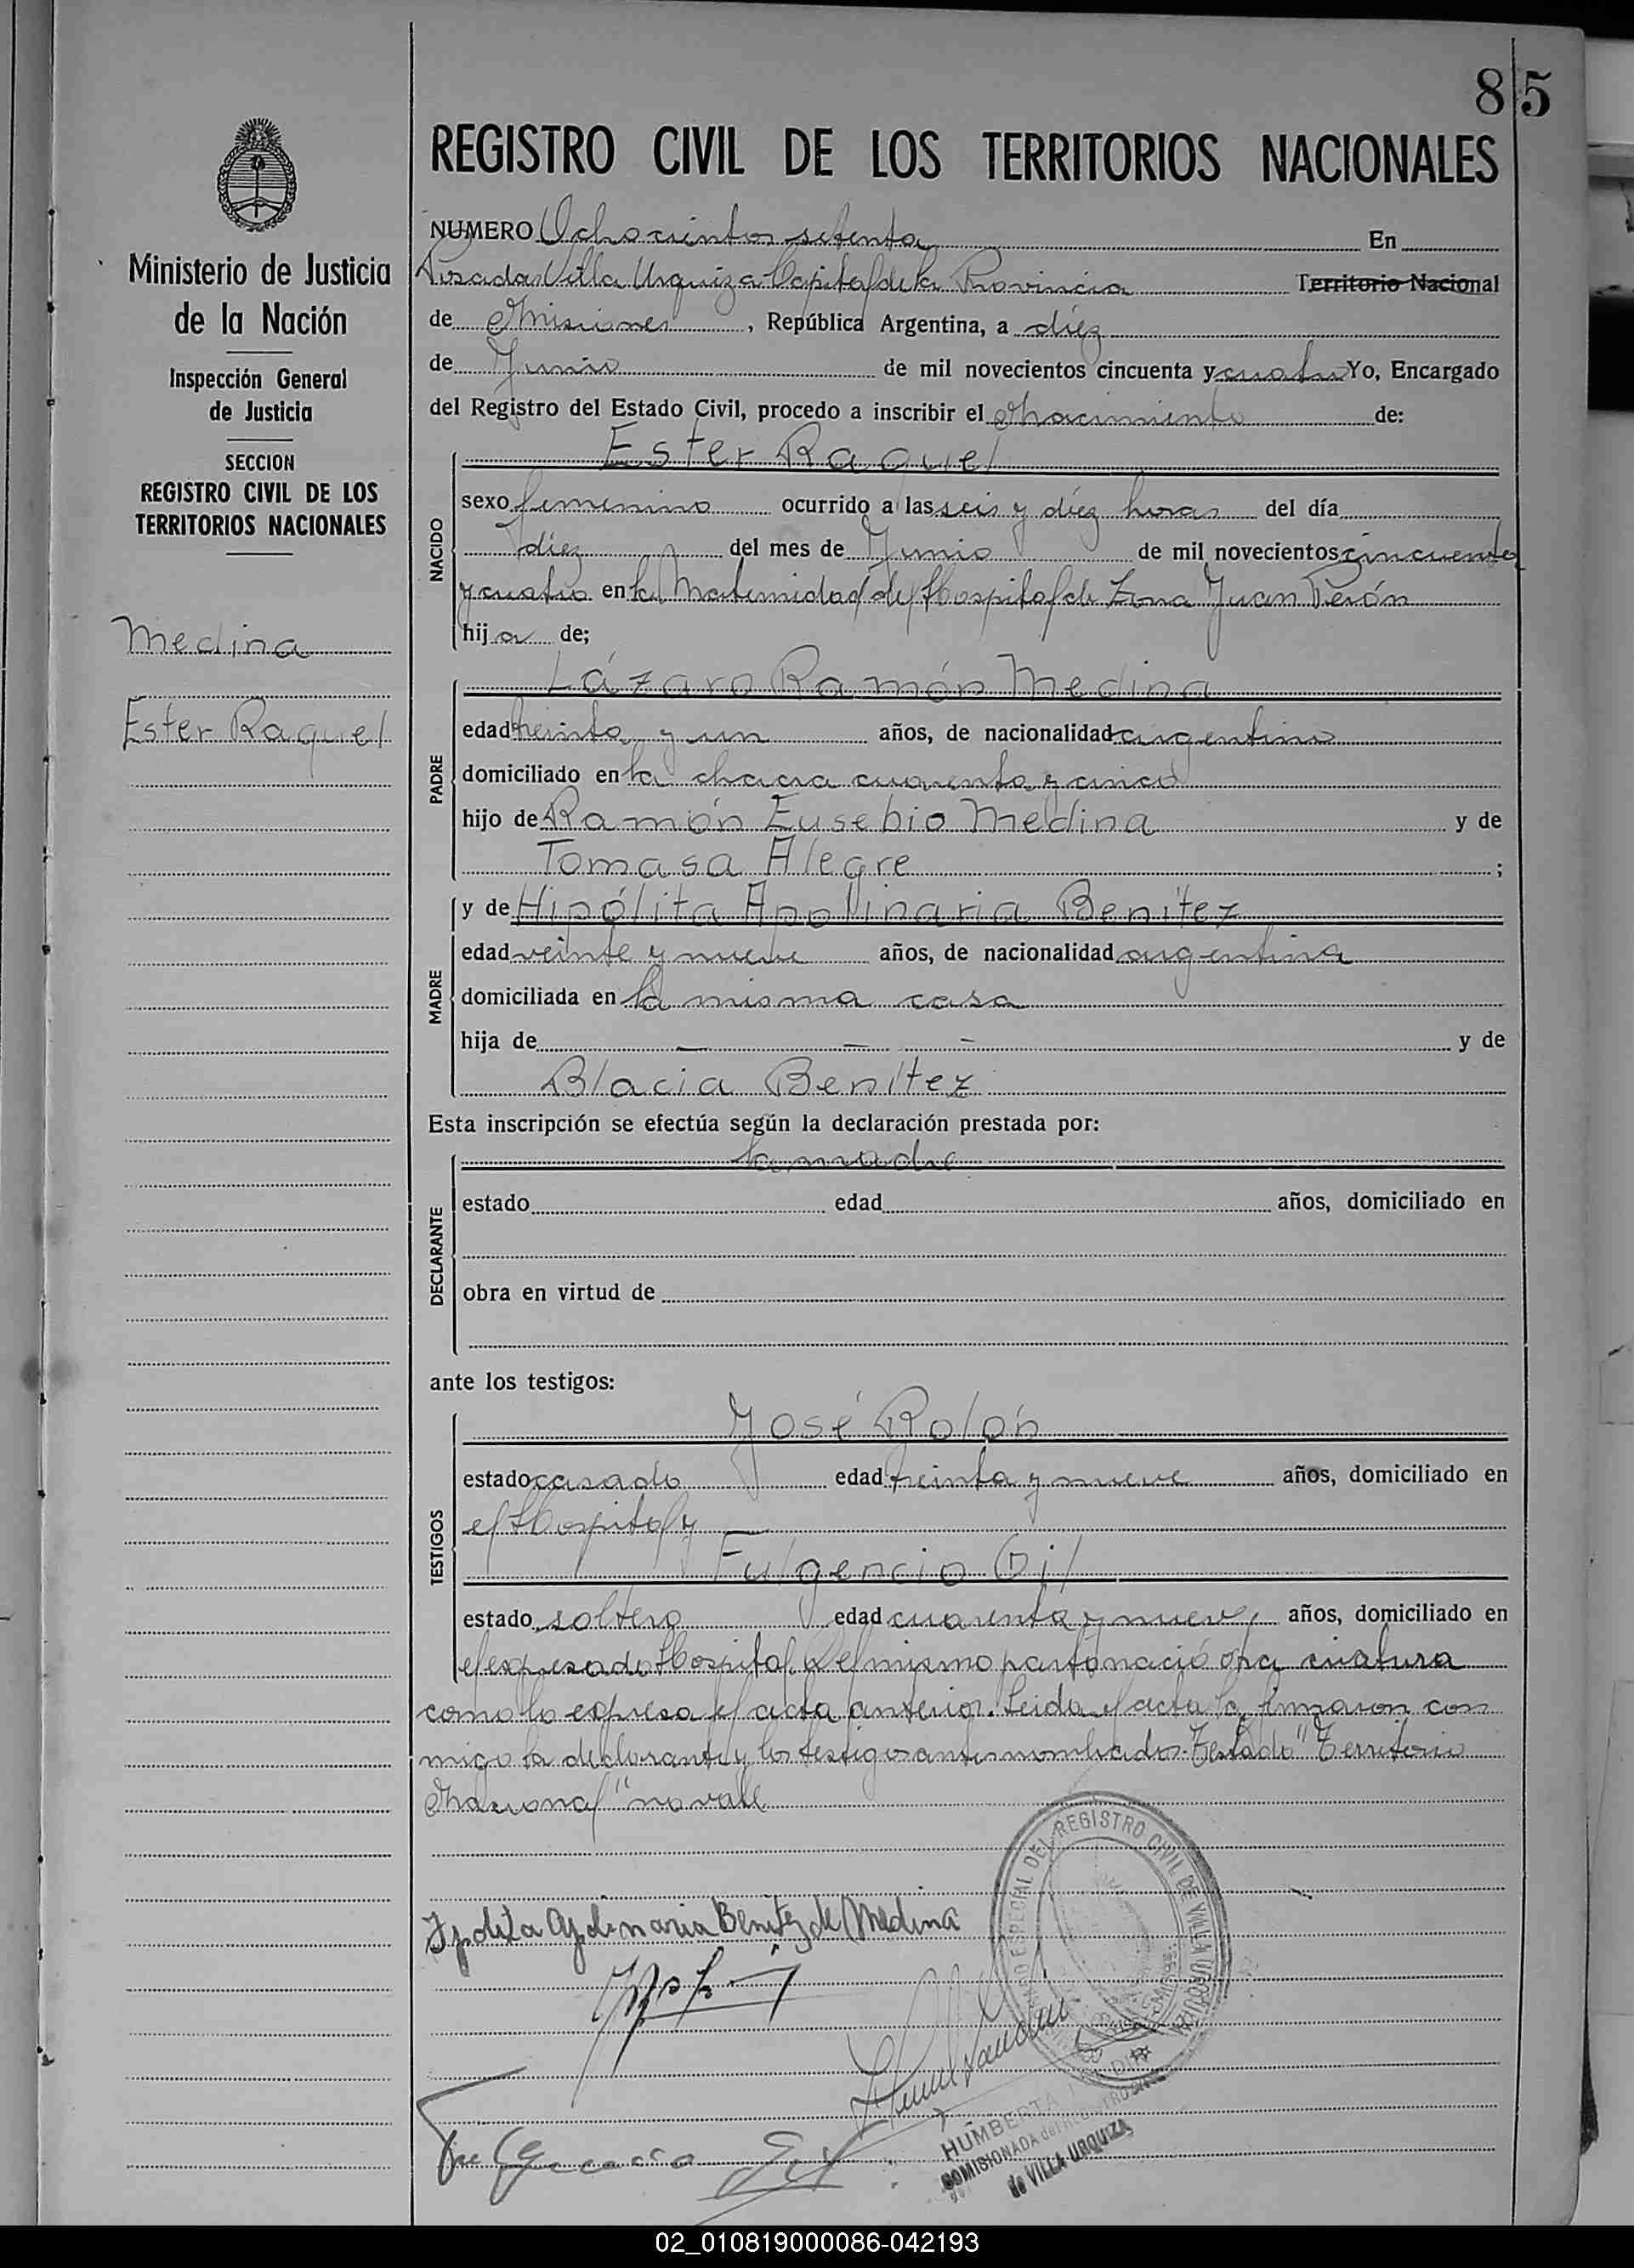 85
REGISTRO CIVIL DE LOS TERRITORIOS NACIONALES
Ministerio de Justicia
de la Nación
Inspección General
de Justicia
SECCION
REGISTRO CIVIL DE LOS
TERRITORIOS NACIONALES
Medina
Ester Raquel
NUMERO Ochocientos setenta En
Posadas Villa Urquiza Capital de la Provincia Territorio Nacional
de Misiones, República Argentina, a diéz
de Junio de mil novecientos cincuenta y cuatro Yo, Encargado
del Registro del Estado Civil, procedo a inscribir el Nacimiento de:
Ester Raquel
NACIDO
sexo femenino ocurrido a las seis y diéz horas del día
diéz del mes de Junio de mil novecientos cincuenta
y cuatro en la Maternidad del Hospital de Zona Juan Perón
hija de;
Lázaro Ramón Medina
PADRE
edad treinta y un años, de nacionalidad argentino
domiciliado en la chacra cuarenta y cinco
hijo de Ramón Eusebio Medina y de
Tomasa Alegre ;
y de Hipólita Apolinaria Benítez
MADRE
edad veinte y nueve años, de nacionalidad argentina
domiciliada en la misma casa
hija de — — — y de
Blacia Benítez
Esta inscripción se efectúa según la declaración prestada por:
la madre
DECLARANTE
estado edad años, domiciliado en
obra en virtud de
ante los testigos:
José Rolón
TESTIGOS
estado casado edad treinta y nueve años, domiciliado en
el Hospital y
Fulgencio Gil
estado soltero edad cuarenta y nueve, años, domiciliado en
el expresado Hospital. Del mismo parto nació otra criatura
como lo expresa el acta anterior. Leida el acta la firmaron con
migo la declarante y los testigos antes nombrados. Testado "Territorio
Nacional" no vale
Ypolita Apolinaria Benitez de Medina
Fulgencio Gil
DEL REGISTRO CIVIL DE VILLA URQUIZA
HUMBERTA
COMISIONADA del
de VILLA URQUIZA
02_010819000086-042193